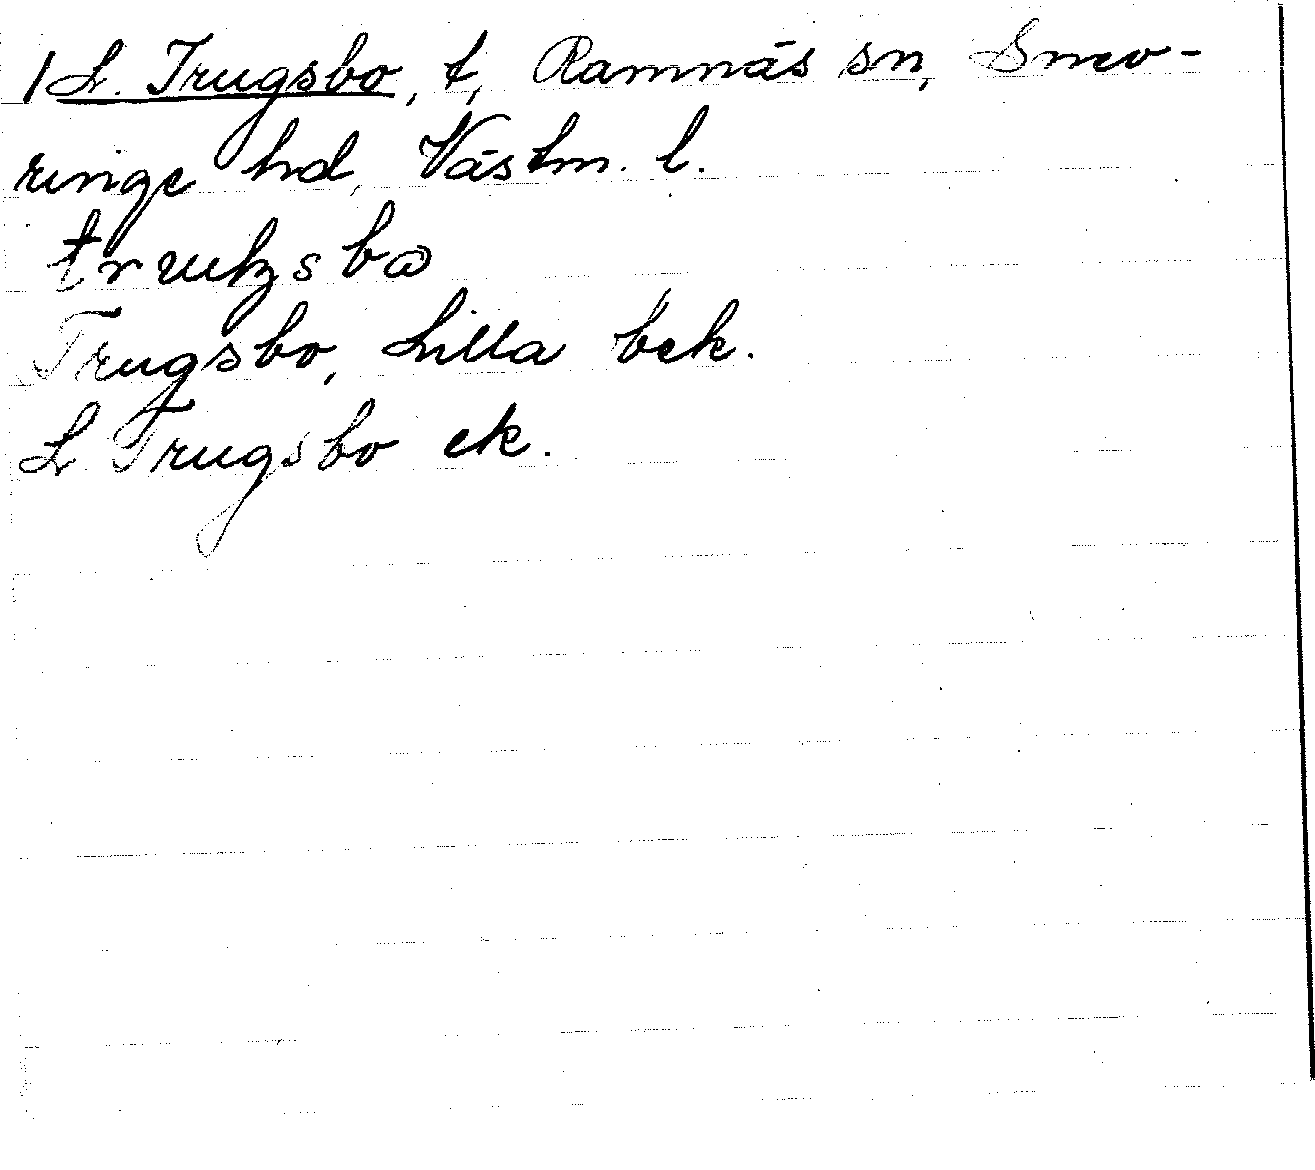 /L. Trugsbo, t, Ramnäs sn, Snev-
ringe hd, Västm. l.
Trugsbo, Lilla bek.
L Trugsbo ek.